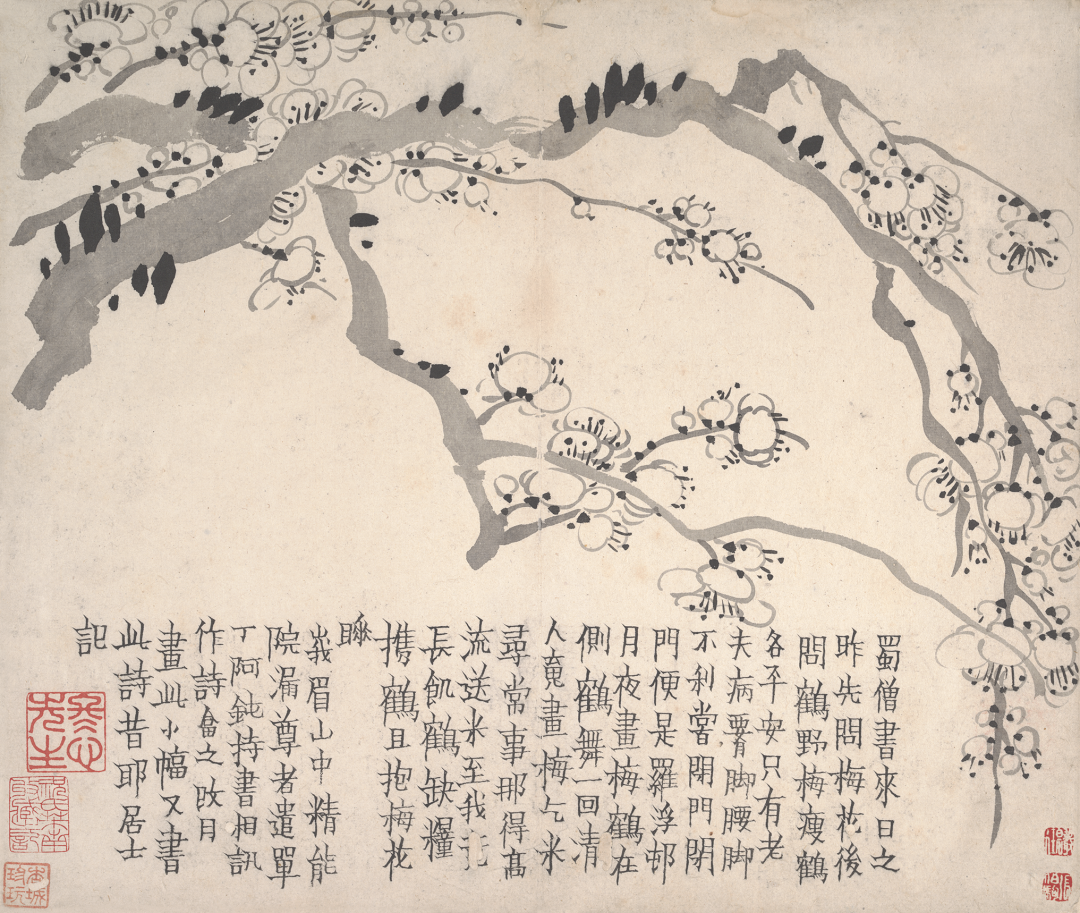 蜀僧書來日之
昨先問梅花後
問鶴野梅瘦鶴
各平安只有老
夫病腰脚腰脚
不利嘗閉門閉
門便是羅浮邨
月夜畫梅鶴在
側鶴舞一回清
人䰟畫梅乞米
尋常事那得高
流送米至我
長飢鶴缺糧
携鶴且抱梅花
睡
峩眉山中精能
院漏尊者遣單
丁阿鈍持書相訊
作詩畣之攺月
畫此小幅又書
此詩昔耶居士
記
冬心先生